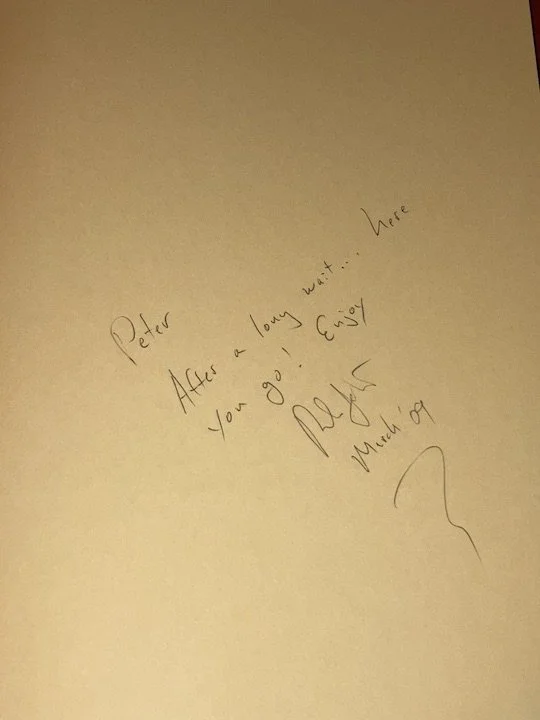 Peter
After a long wait... here
you go! Enjoy
March '09